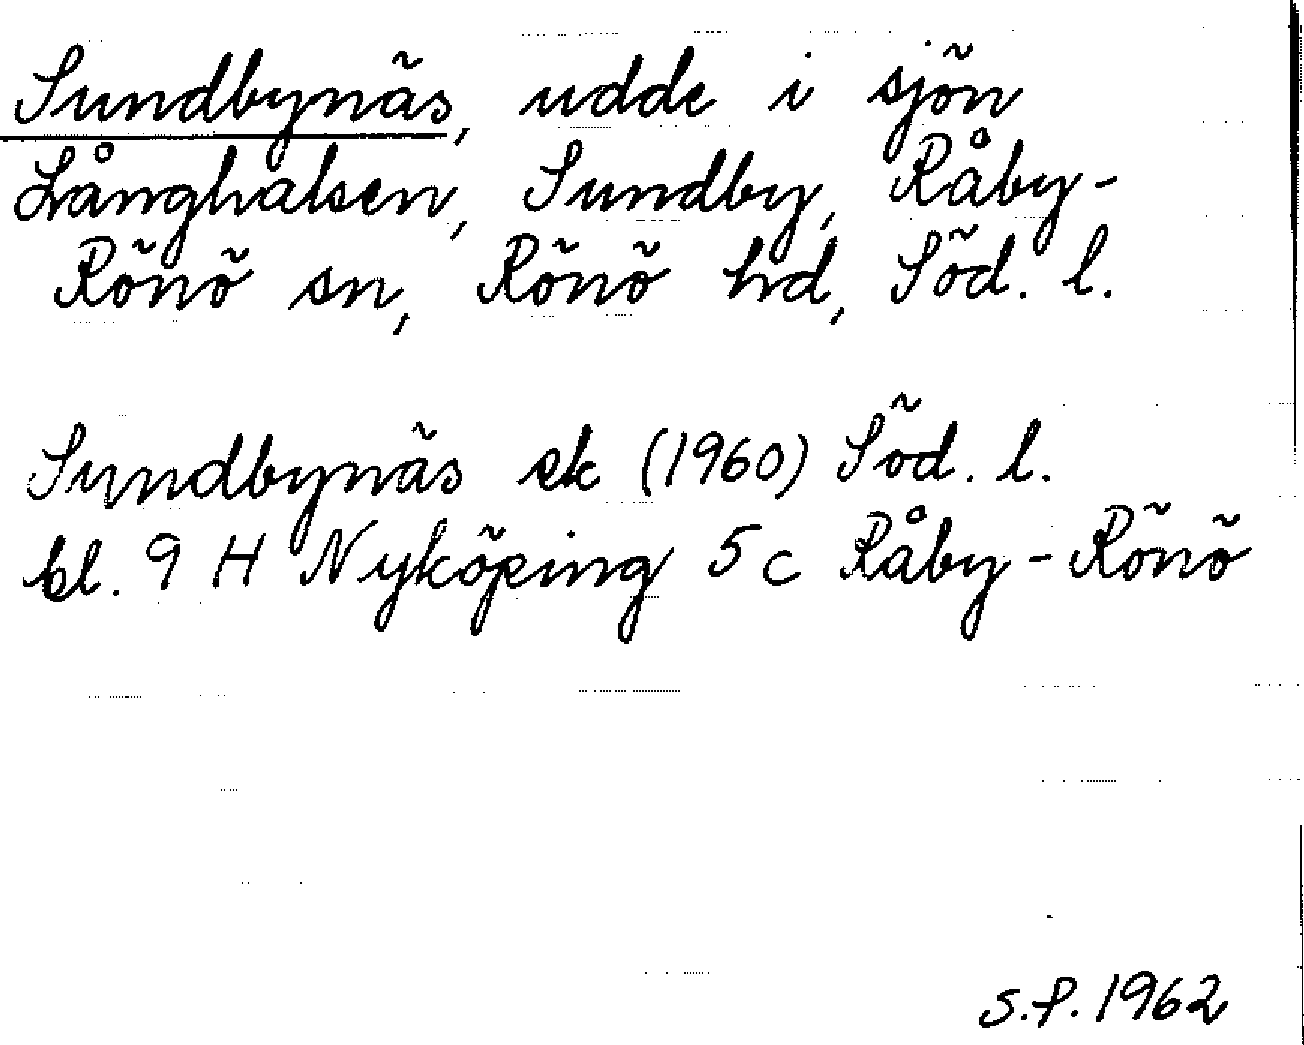 Sundbynäs, udde i sjön
Långhalsen, Sundby, Råby-
Rönö sn, Rönö hd, Söd. l.
Sundbynäs ek (1960) Söd. l.
bl. 9 H Nyköping 5 c Råby-Rönö
S.P. 1962